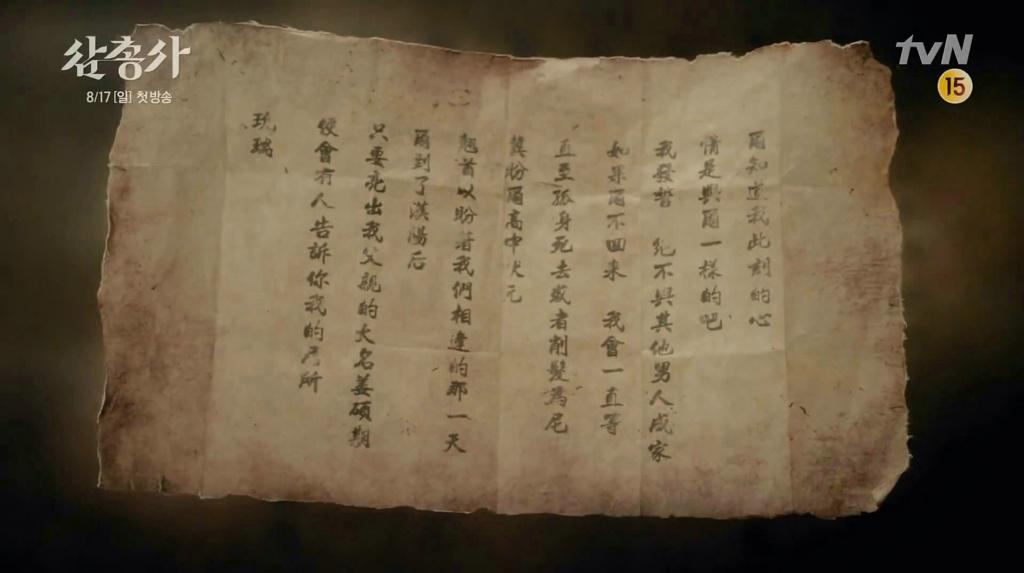 삼총사
8/17[일] 첫방송
tvN
15
爾知道我此刻的心
情是與爾一樣的吧
我發誓 絕不與其他男人成家
如果爾不回來 我會一直等
直至孤身死去或者削髮為尼
冀盼爾高中狀元
翹首以盼著我們相逢的那一天
爾到了漢陽后
只要亮出我父親的大名姜碩期
便會有人告訴你我的居所
玧瑞